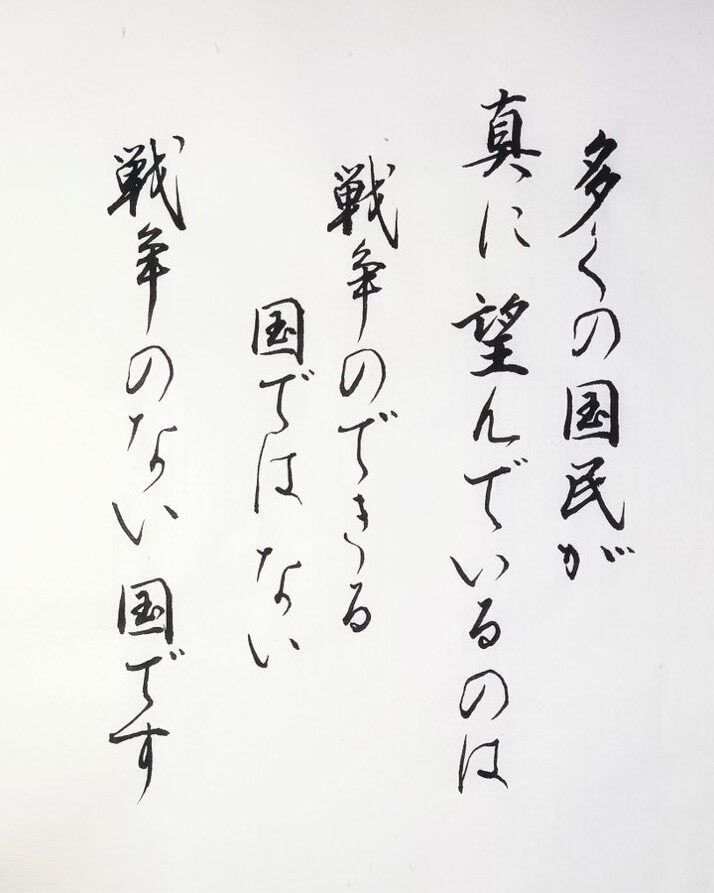 多くの国民が
真に望んでいるのは
戦争のできる
国ではない
戦争のない国です